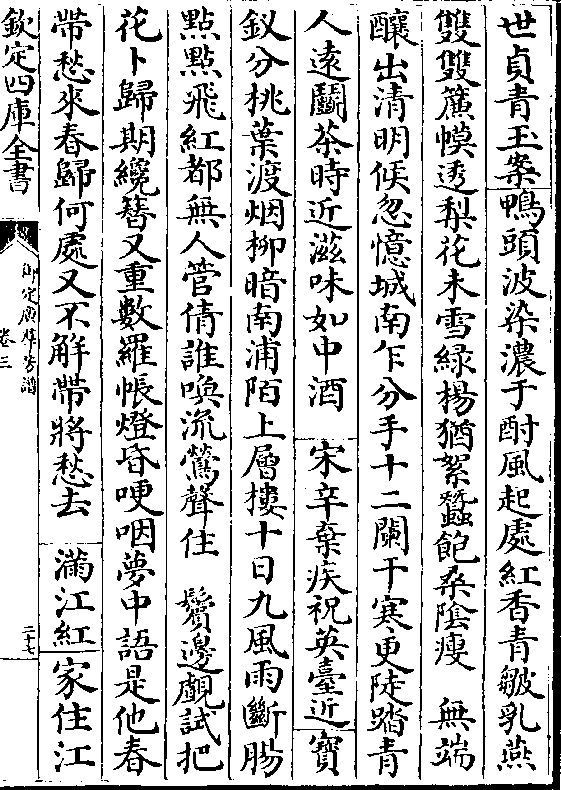 世貞青玉案鴨頭波染濃于酎風起處紅香青皺乳燕
雙雙簾幙透梨花未雪緑楊猶絮蠶飽桑陰瘦　無端
釀出清明候忽憶城南乍分手十二闌干寒更陡踏青
人遠鬭茶時近滋味如中酒　宋辛棄疾祝英臺近寶
釵分桃葉渡烟柳暗南浦陌上層樓十日九風雨斷腸
點點飛紅都無人管倩誰喚流鶯聲住　鬢邊覷試把
花卜歸期纔簪又重數羅帳燈昏哽咽夢中語是他春
帶愁來春歸何處又不解帶將愁去　滿江紅家住江
欽定四庫全書
御定廣羣芳譜
卷三
二十七